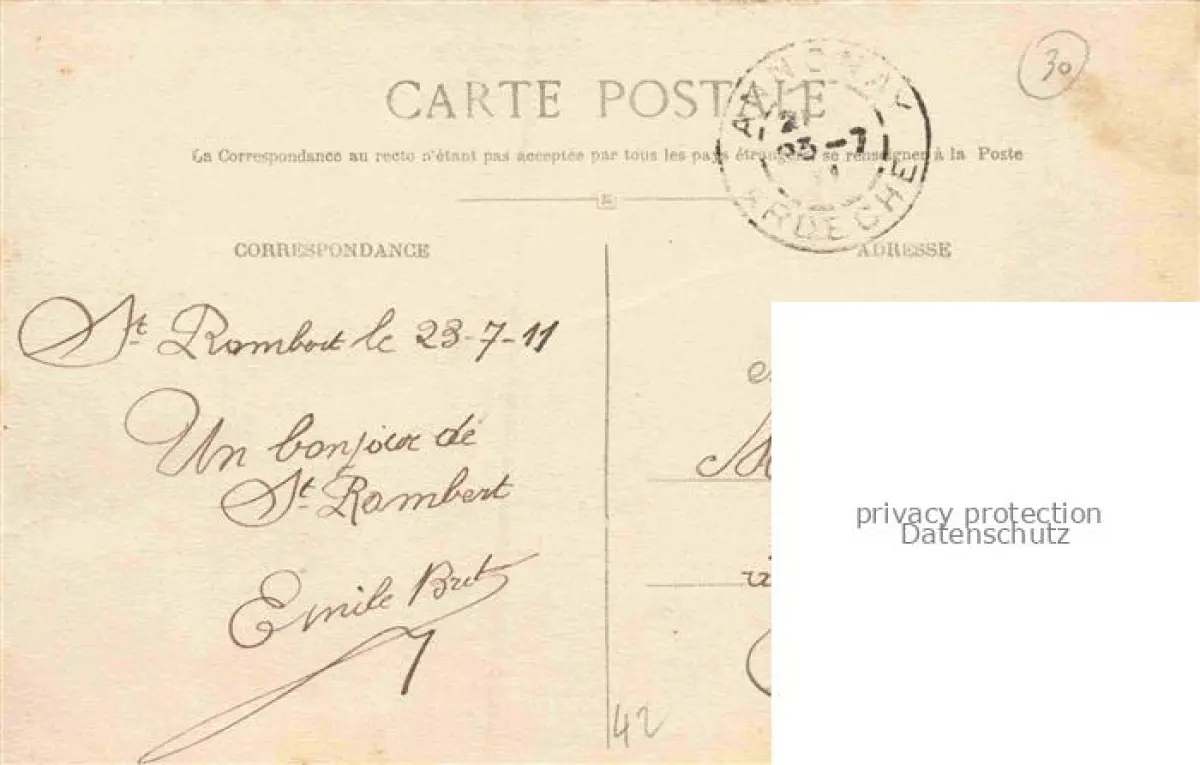 30
CARTE POSTALE
ANNONAY
21
23 -7
11
ARDECHE
La Correspondance au recto n'étant pas acceptée par tous les pays étrangers, se renseigner à la Poste
CORRESPONDANCE
ADRESSE
St Rambert le 23-7-11
Un bonjour de
St Rambert
Emile Bret
42
privacy protection
Datenschutz